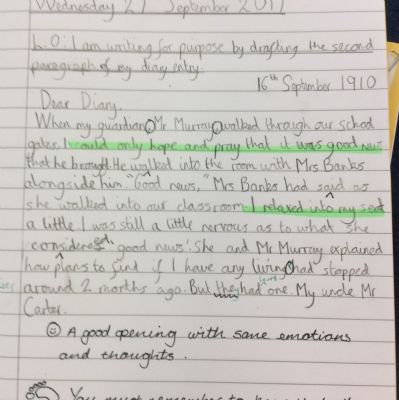 Wednesday 27 September 2017
L.O: I am writing for purpose by drafting the second
paragraph of my diary entry.
16th September 1910
Dear Diary,
When my guardian, Mr Murray, walked through our school
gates, I could only hope and pray that it was good news
that he brought. He walked into the room with Mrs Banks
alongside him. "Good news," Mrs Banks had said as
she walked into our classroom. I relaxed into my seat
a little. I was still a little nervous as to what she
considered 'good news'. She and Mr Murray explained
how plans to find if I have any living had stopped
around 2 months ago. But they had one. My uncle Mr
Carter.
A good opening with some emotions
and thoughts.
You must remember to